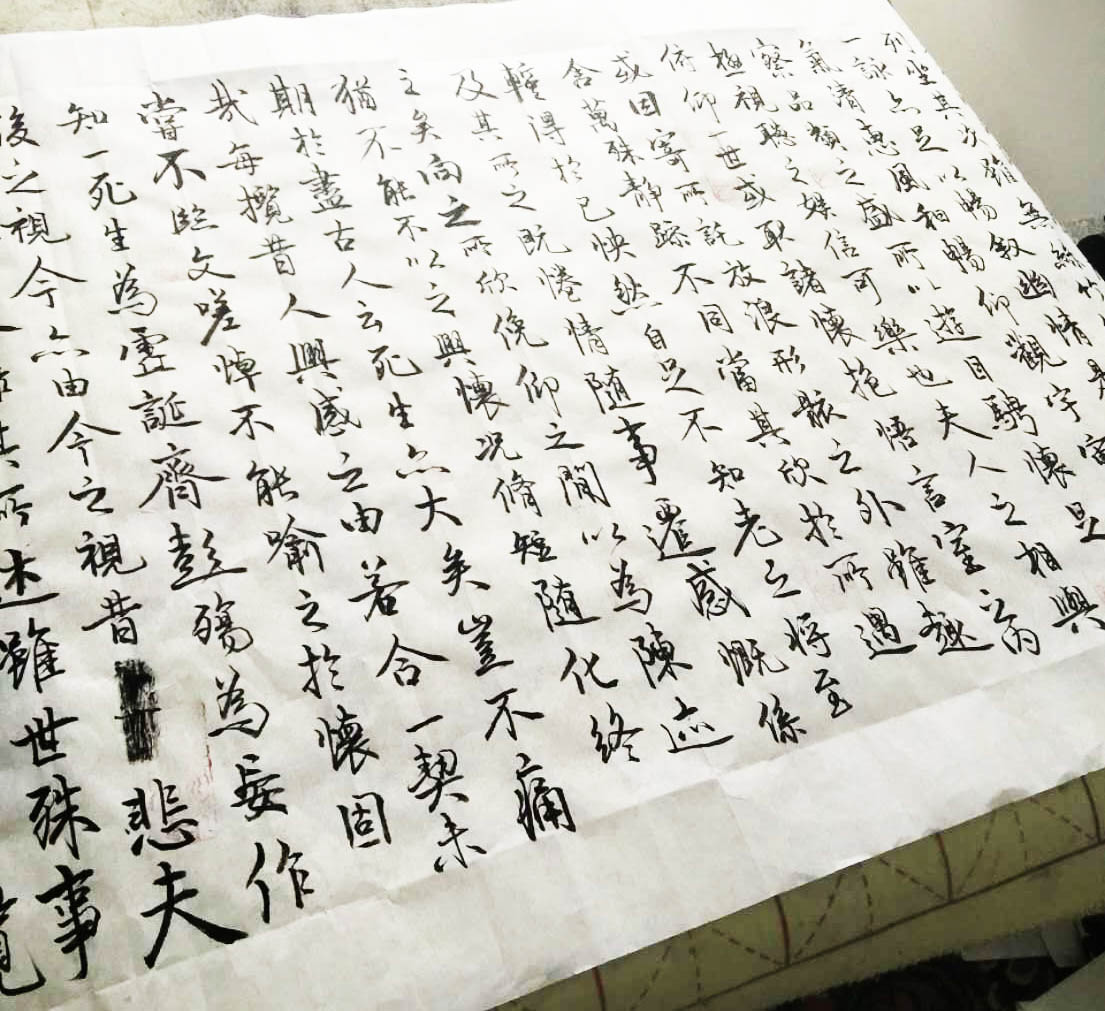 列坐其次雖無絲竹
一詠亦足以暢敘幽情是
氣清惠風和暢仰觀宇宙
察品類之盛所以遊目騁懷足
極視聽之娛信可樂也夫人之相與
俯仰一世或取諸懷抱悟言室之內
或因寄所託放浪形骸之外雖趣
舍萬殊靜躁不同當其欣於所遇
蹔得於己怏然自足不知老之將至
及其所之既惓情隨事遷感慨係
之矣向之所欣俛仰之間以為陳迹
猶不能不以之興懷況脩短隨化終
期於盡古人云死生亦大矣豈不痛
哉每攬昔人興感之由若合一契未
嘗不臨文嗟悼不能喻之於懷固
知一死生為虛誕齊彭殤為妄作
後之視今亦由今之視昔悲夫
其所述雖世殊事
覽